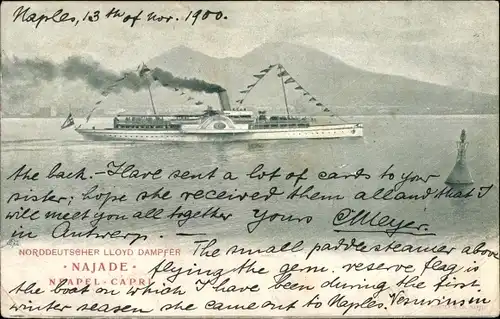 Naples, 13th of nov. 1900.
the back. - Have sent a lot of cards to your
sister; hope she received them all and that I
will meet you all together Yours CMeyer.
in Antwerp.
NORDDEUTSCHER LLOYD DAMPFER
· NAJADE ·
NEAPEL - CAPRI
The small paddlesteamer above
flying the gem. reserve flag is
the boat on which I have been during the first
winter season she came out to Naples. Vesuvius in